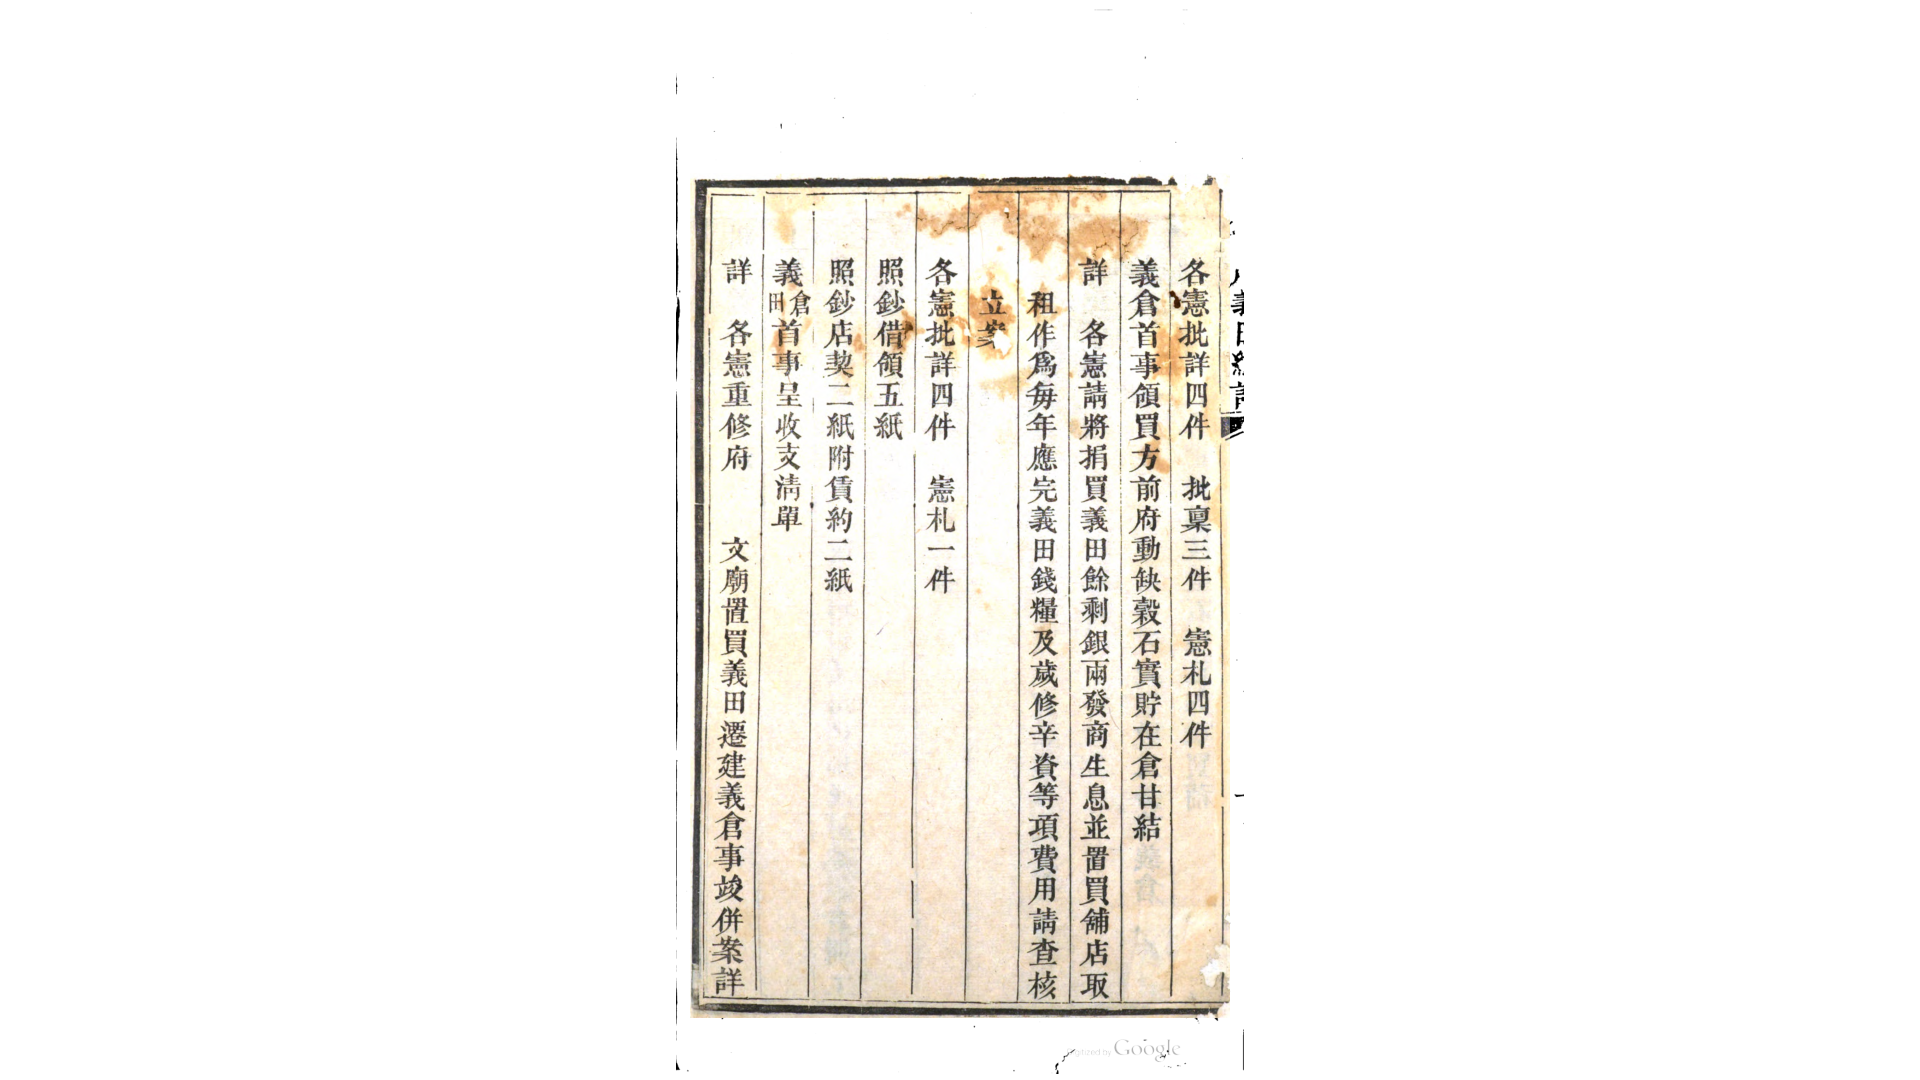 各憲批詳四件　批稟三件　憲札四件
義倉首事領買方前府動缺穀石實貯在倉甘結
詳　各憲請將捐買義田餘剩銀兩發商生息並置買舖店取
租作爲每年應完義田錢糧及歲修辛資等項費用請查核
立案
各憲批詳四件　憲札一件
照鈔借領五紙
照鈔店契二紙附賃約二紙
義倉田首事呈收支清單
詳　各憲重修府　　文廟置買義田遷建義倉事竣併案詳
Digitized by Google